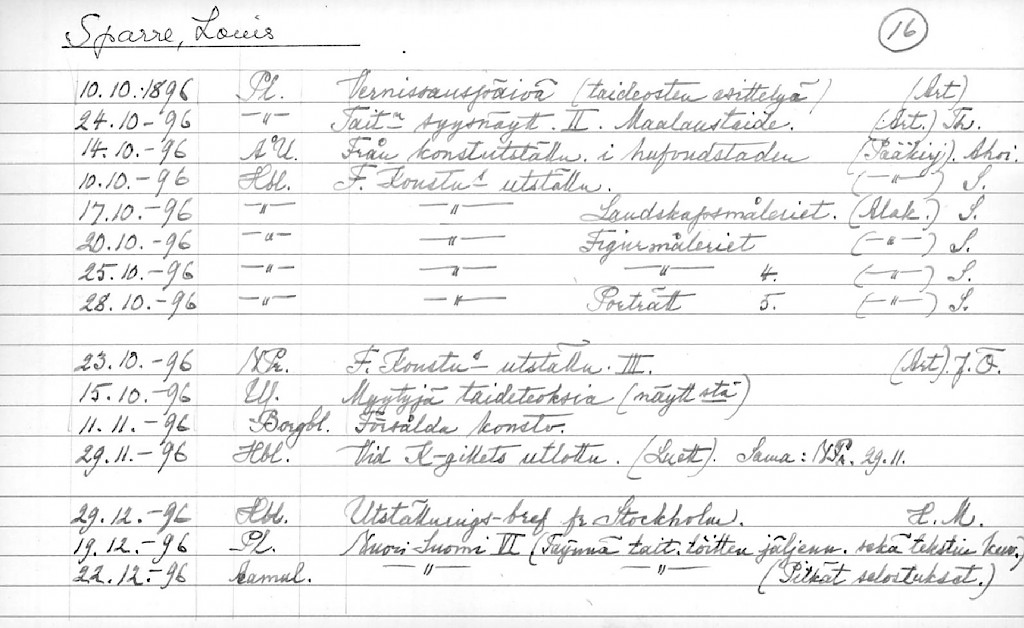 Sparre, Louis (16)
10.10.1896 Pl. Vernissauspäivä (taideosten esittelyä) (Art)
24.10-96 -"- Tait:n syysnäytt. II. Maalaustaide. (Art.) Th.
14.10.-96 ÅU. Från konstutställn. i hufvudstaden (Pääkirj).
10.10.-96 Hbl. F. Konstn:s utställn. (-"-) S.
17.10.-96 -"- -"- Landskapsmåleriet. (Alak.) S.
20.10.-96 -"- -"- Figurmåleriet (-"-) S.
25.10.-96 -"- -"- -"- 4. (-"-) S.
28.10.-96 -"- -"- Porträtt 5. (-"-) S.
23.10.-96 NPr. F. Konstn:s utställn. III. (Art). J. Ö.
15.10.-96 US. Myytyjä taideteoksia (näytt:stä)
11.11.-96 Borgbl. Försålda konstv.
29.11.-96 Hbl. Vid K-gillets utlottn. (Luett). Sama: NPr. 29.11.
29.12.-96 Hbl. Utställnings-bref fr Stockholm. H. M.
19.12.-96 Pl. Nuori Suomi VI (Täynnä tait. töitten jäljenn. sekä tekstin kuv.)
22.12.-96 Aamul. -"- -"- (Pitkät selostukset.)